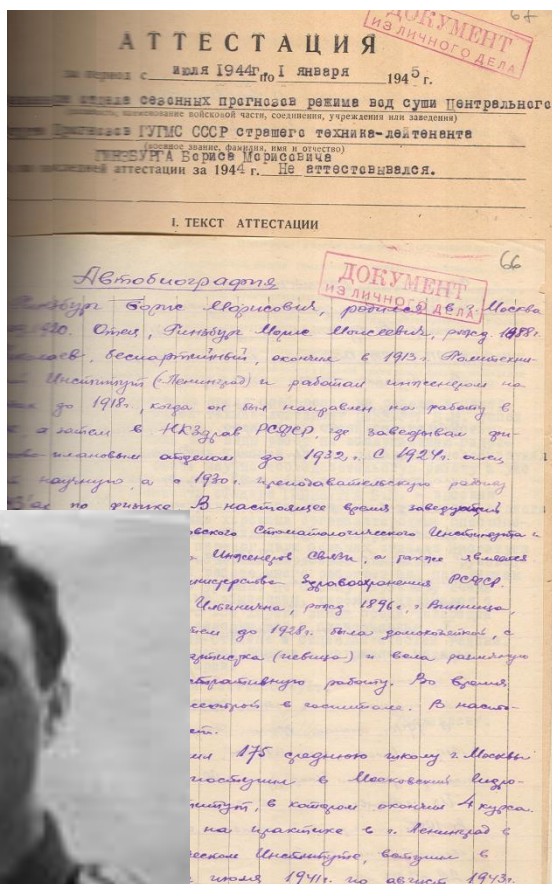 67
ДОКУМЕНТ
ИЗ ЛИЧНОГО ДЕЛА
АТТЕСТАЦИЯ
период с июля 1944г. по I января 1945 г.
отдела сезонных прогнозов режима вод суши Центрального
наименование войсковой части, соединения, учреждения или заведения)
Прогнозов ГУГМС СССР старшего техника-лейтенанта
(военное звание, фамилия, имя и отчество)
ГИНЗБУРГА Бориса Морисовича
аттестации за 1944 г. Не аттестовывался.
I. ТЕКСТ АТТЕСТАЦИИ
66
ДОКУМЕНТ
ИЗ ЛИЧНОГО ДЕЛА
Автобиография
Гинзбург Борис Морисович, родился в г. Москва
1920. Отец, Гинзбург Морис Моисеевич, рожд. 1888г.
беспартийный, окончил в 1913г. Политехни-
Институт (г. Ленинград) и работал инженером на
до 1918г., когда он был направлен на работу в
, а затем в НКЗдрав РСФСР, где заведывал фи-
плановым отделом до 1932г. С 1924г.
научную, а с 1930г. преподавательскую работу
по физике. В настоящее время заведующий
Стоматологического Института и
Инженеров Связи, а также является
Здравоохранения РСФСР.
Ильинична, рожд 1896г., г. Винница,
до 1928г. была домохозяйкой, с
(певица) и вела различную
работу. Во время
в госпитале. В насто-
175 среднюю школу г. Москвы
поступил в Московский Гидро-
в котором окончил 4 курса.
на практике в г. Ленинград в
Институте, вступил в
июля 1941г. по август 1943г.